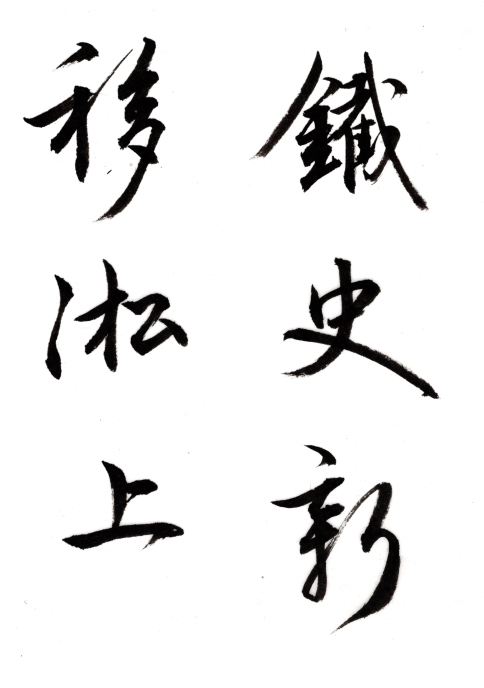 鐵史新
移淞上